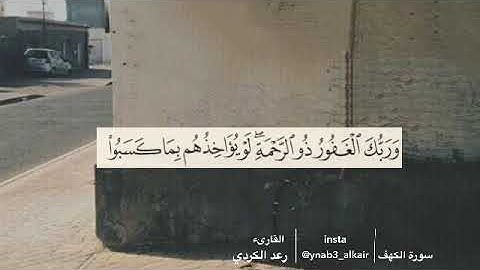 وَرَبُّكَ ٱلْغَفُورُ ذُو ٱلرَّحْمَةِۖ لَوْ يُؤَاخِذُهُم بِمَا كَسَبُوا۟
سورة الكهف
insta
@ynab3_alkair
القارىء
رعد الكردي